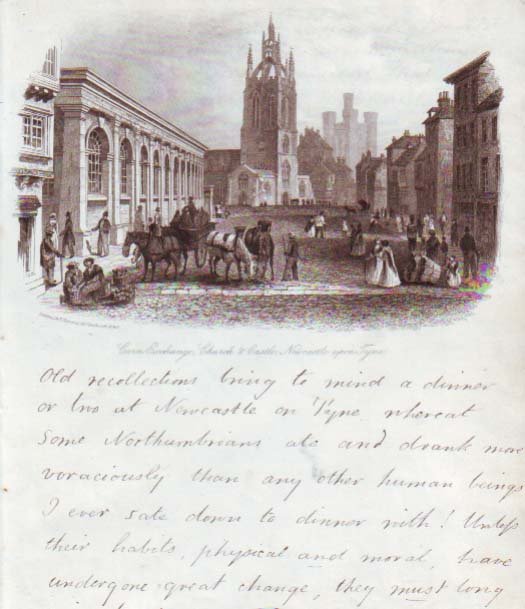 Corn Exchange, Church & Castle, Newcastle upon Tyne
Old recollections bring to mind a dinner
or two at Newcastle on Tyne whereat
some Northumbrians ate and drank more
voraciously than any other human beings
I ever sate down to dinner with! Unless
their habits, physical and moral, have
undergone great change, they must long